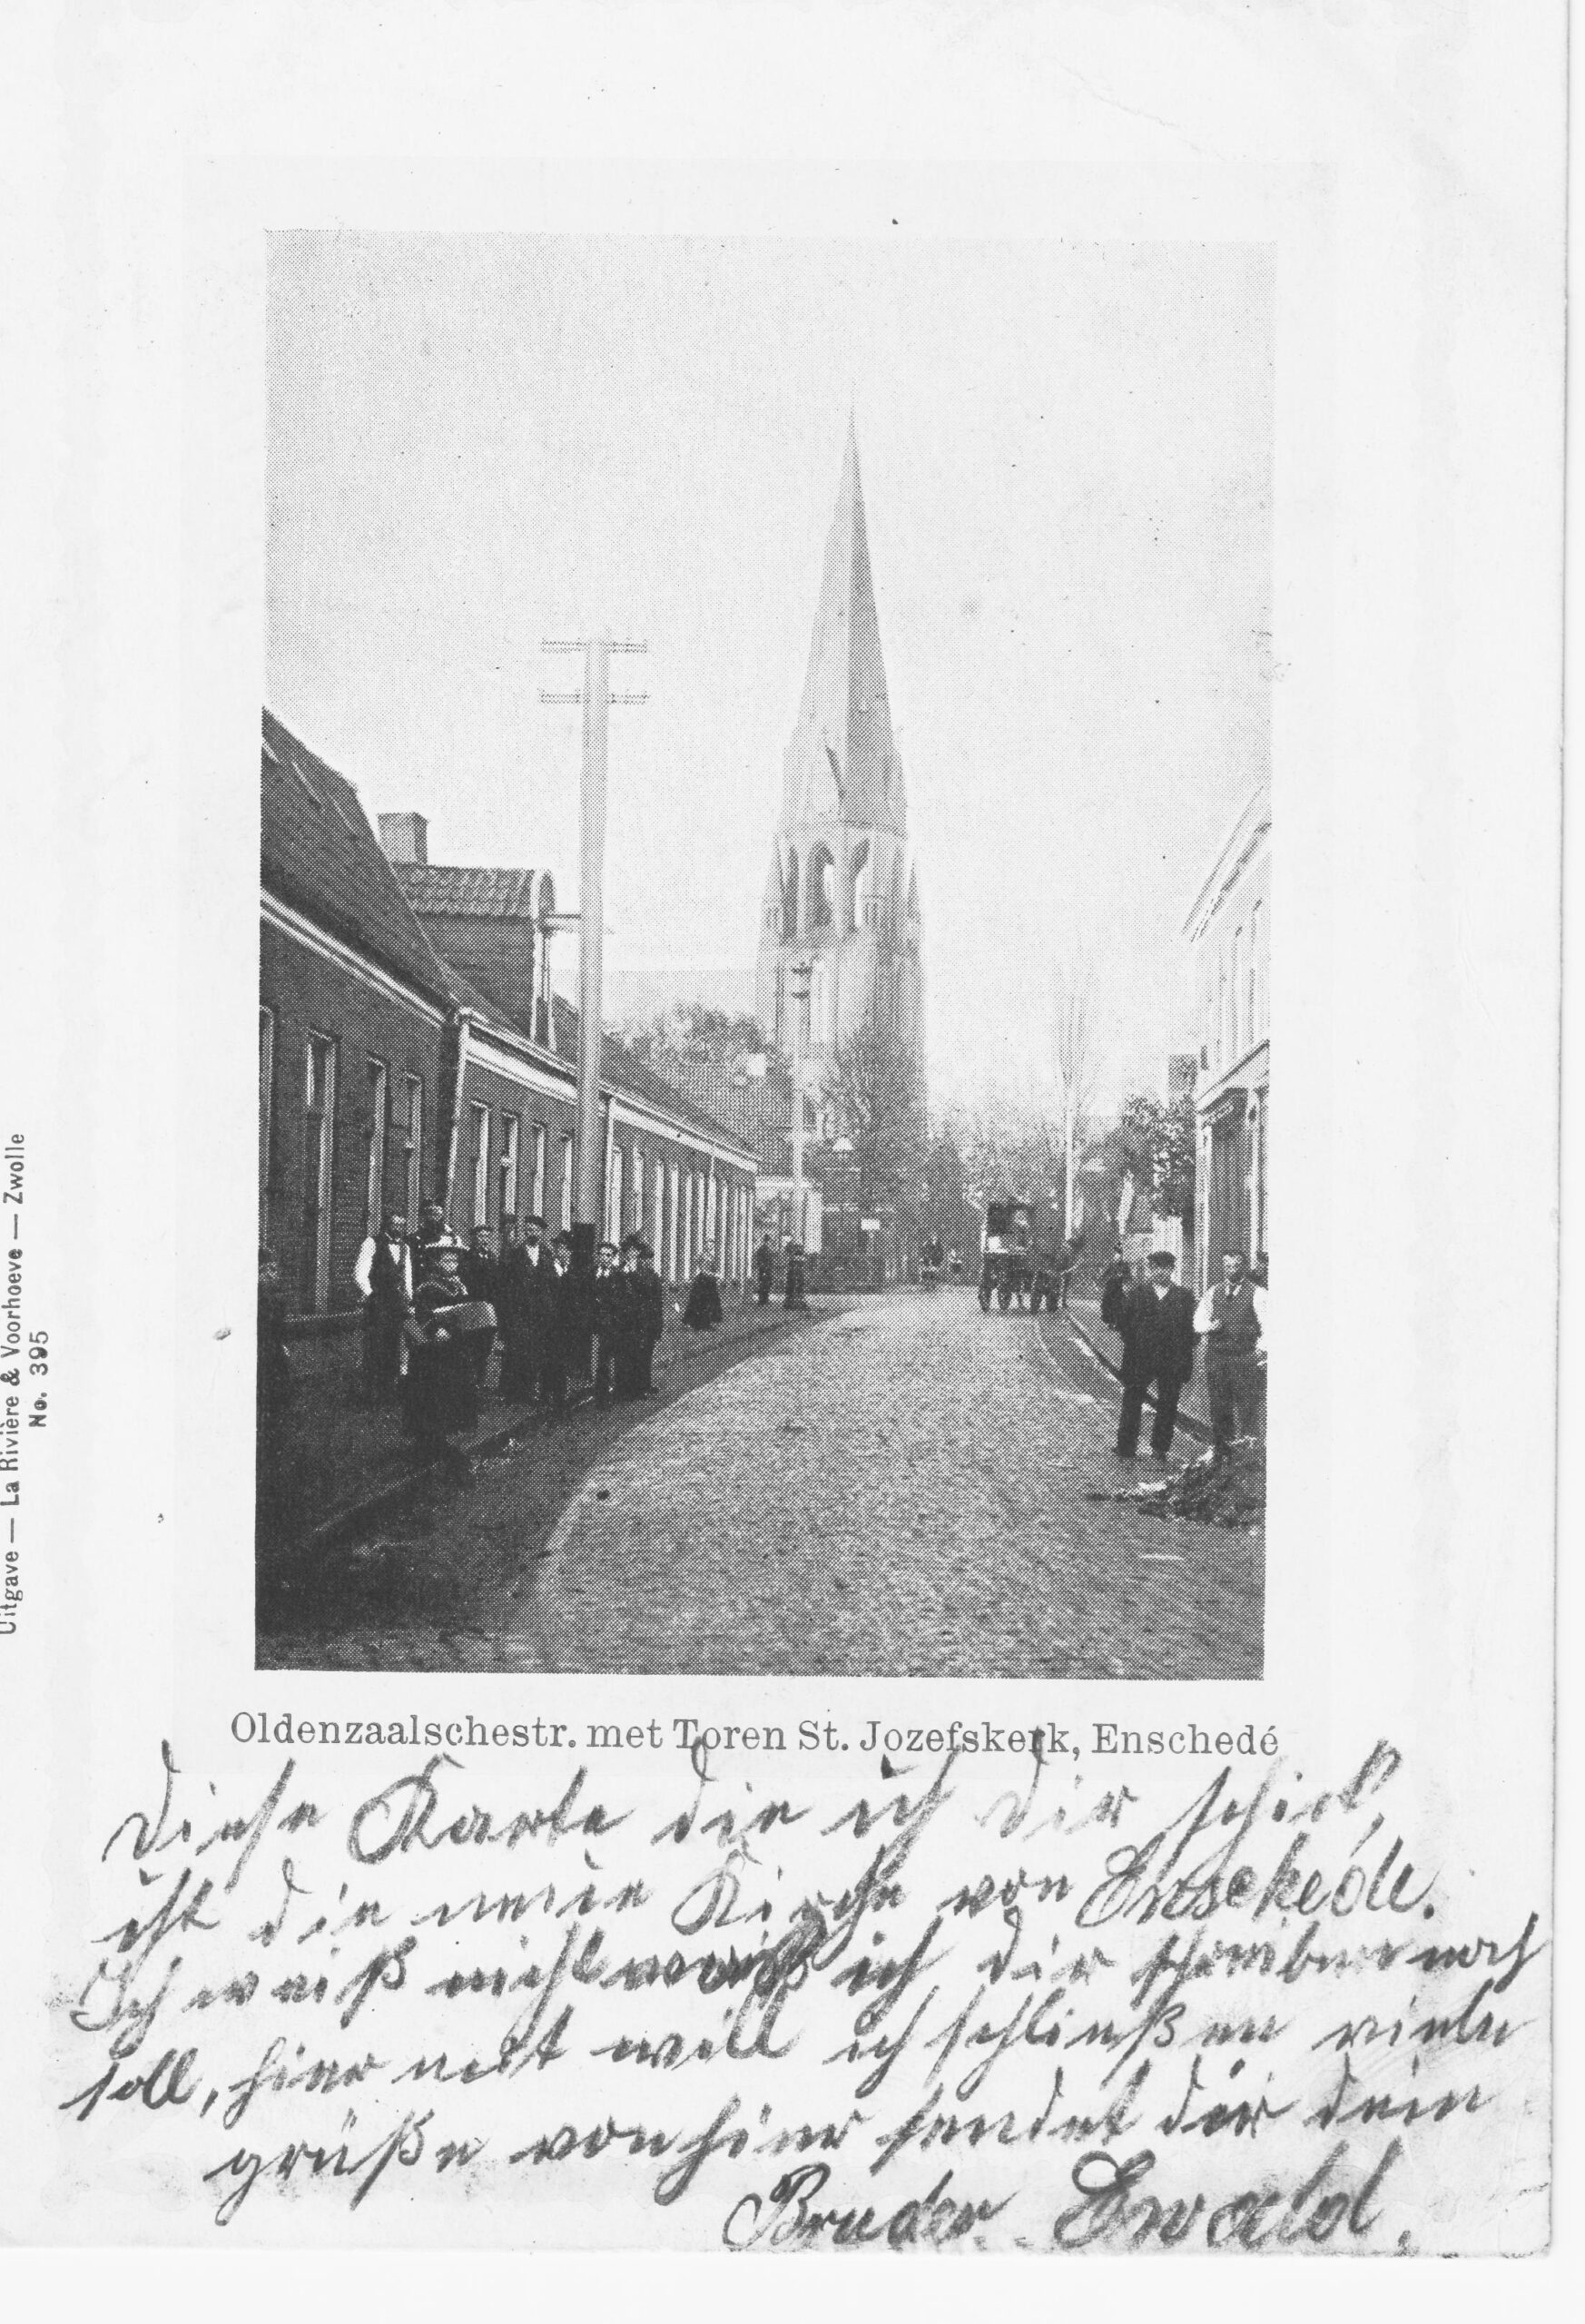 Uitgave — La Rivière & Voorhoeve — Zwolle
No. 395
Oldenzaalschestr. met Toren St. Jozefskerk, Enschedé
Diese Karte die ich dir schick,
ist die neue Kirche von Enschede.
Ich weiß nicht was ich dir schreiben noch
soll, hier mit will ich schließen viele
grüße von hier sendet dir dein
Bruder Ewald.